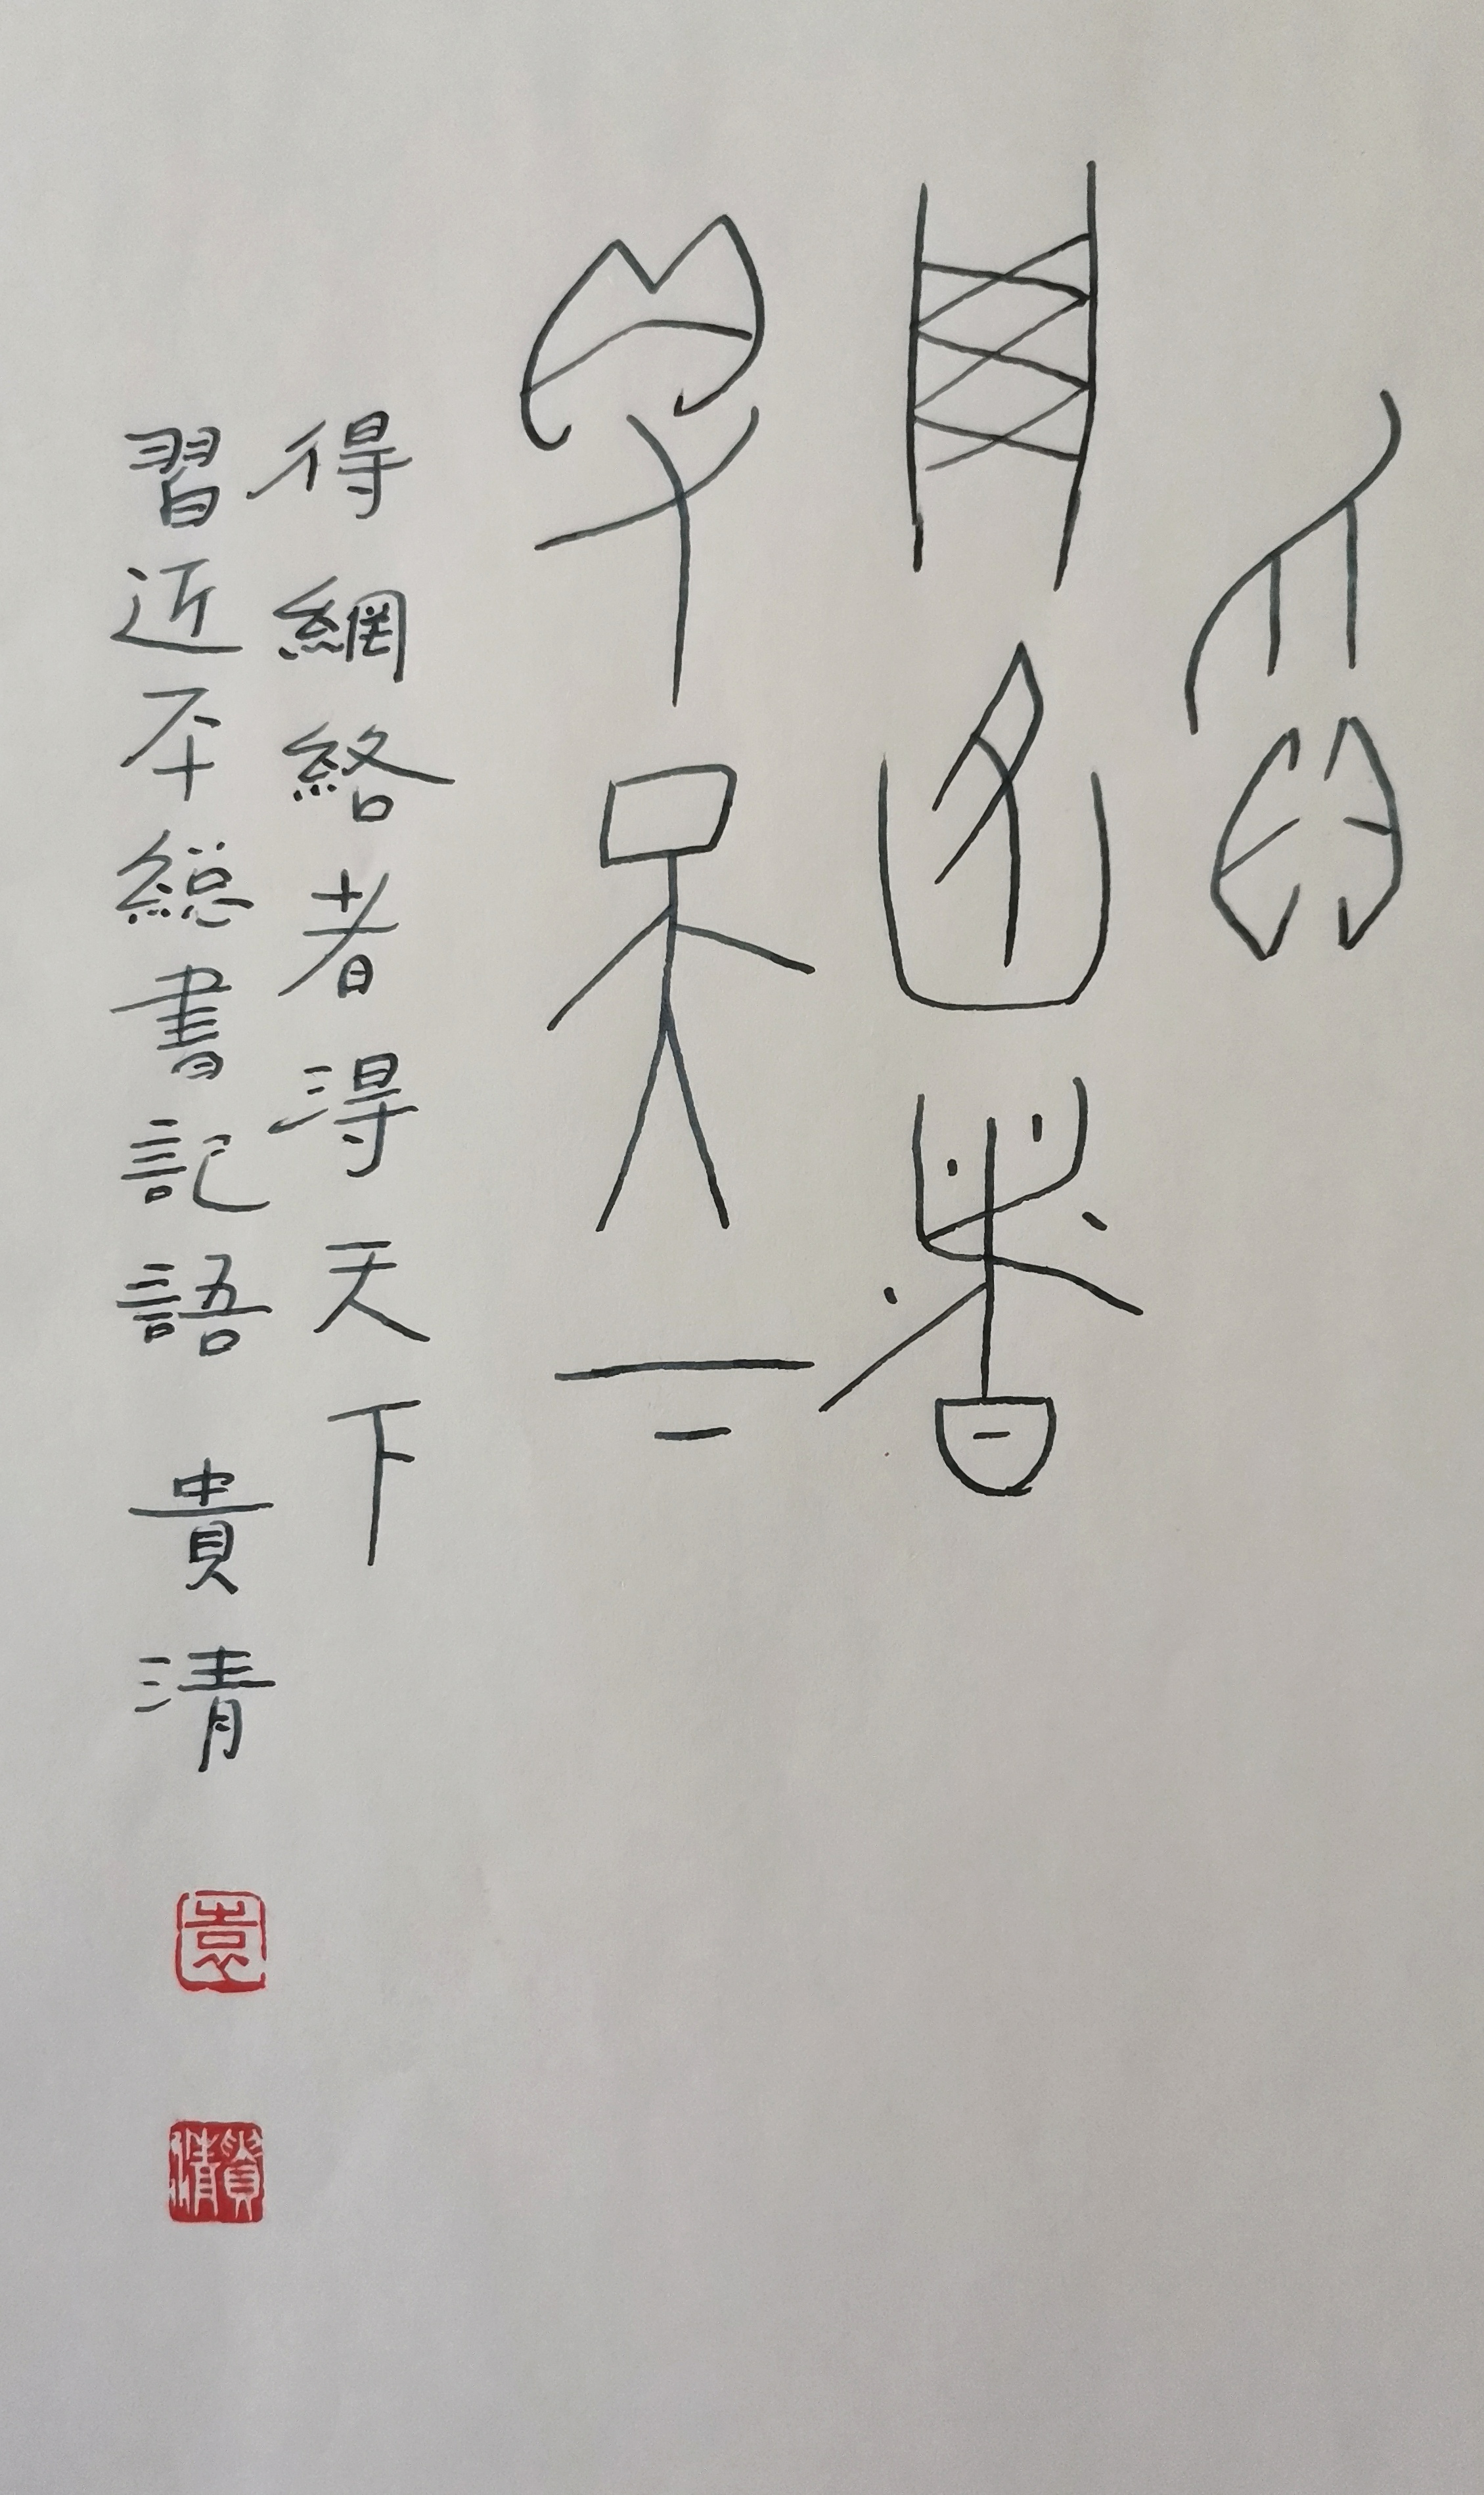 得
网各者
得天下
得網絡者淂天下
習近平總書記語 貴清
袁
貴清